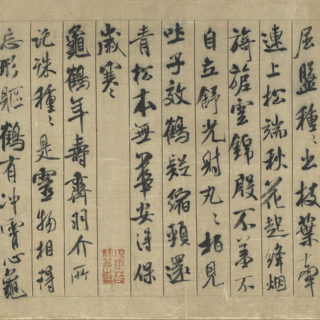 屈盤種〻出枝葉牽
連上松端秋花起絳烟
旖旎雲錦殷不羞不
自立舒光射丸〻柏見
吐子效鶴疑縮頸還
青松本無華安得保
歲寒
龜鶴年壽齊羽介所
託殊種〻是靈物相得
忘形軀鶴有沖霄心龜